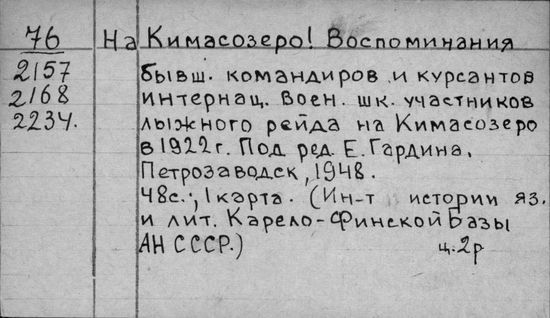 76 На Кимасозеро! Воспоминания
2157 бывш. командиров и курсантов
2168 интернац. воен. шк. участников
2234. лыжного рейда на Кимасозеро
в 1922 г. Под ред. Е. Гардина.
Петрозаводск, 1948.
48 с.; 1 карта. (Ин-т истории яз.
и лит. Карело-Финской Базы
АН СССР.) ц. 2 р